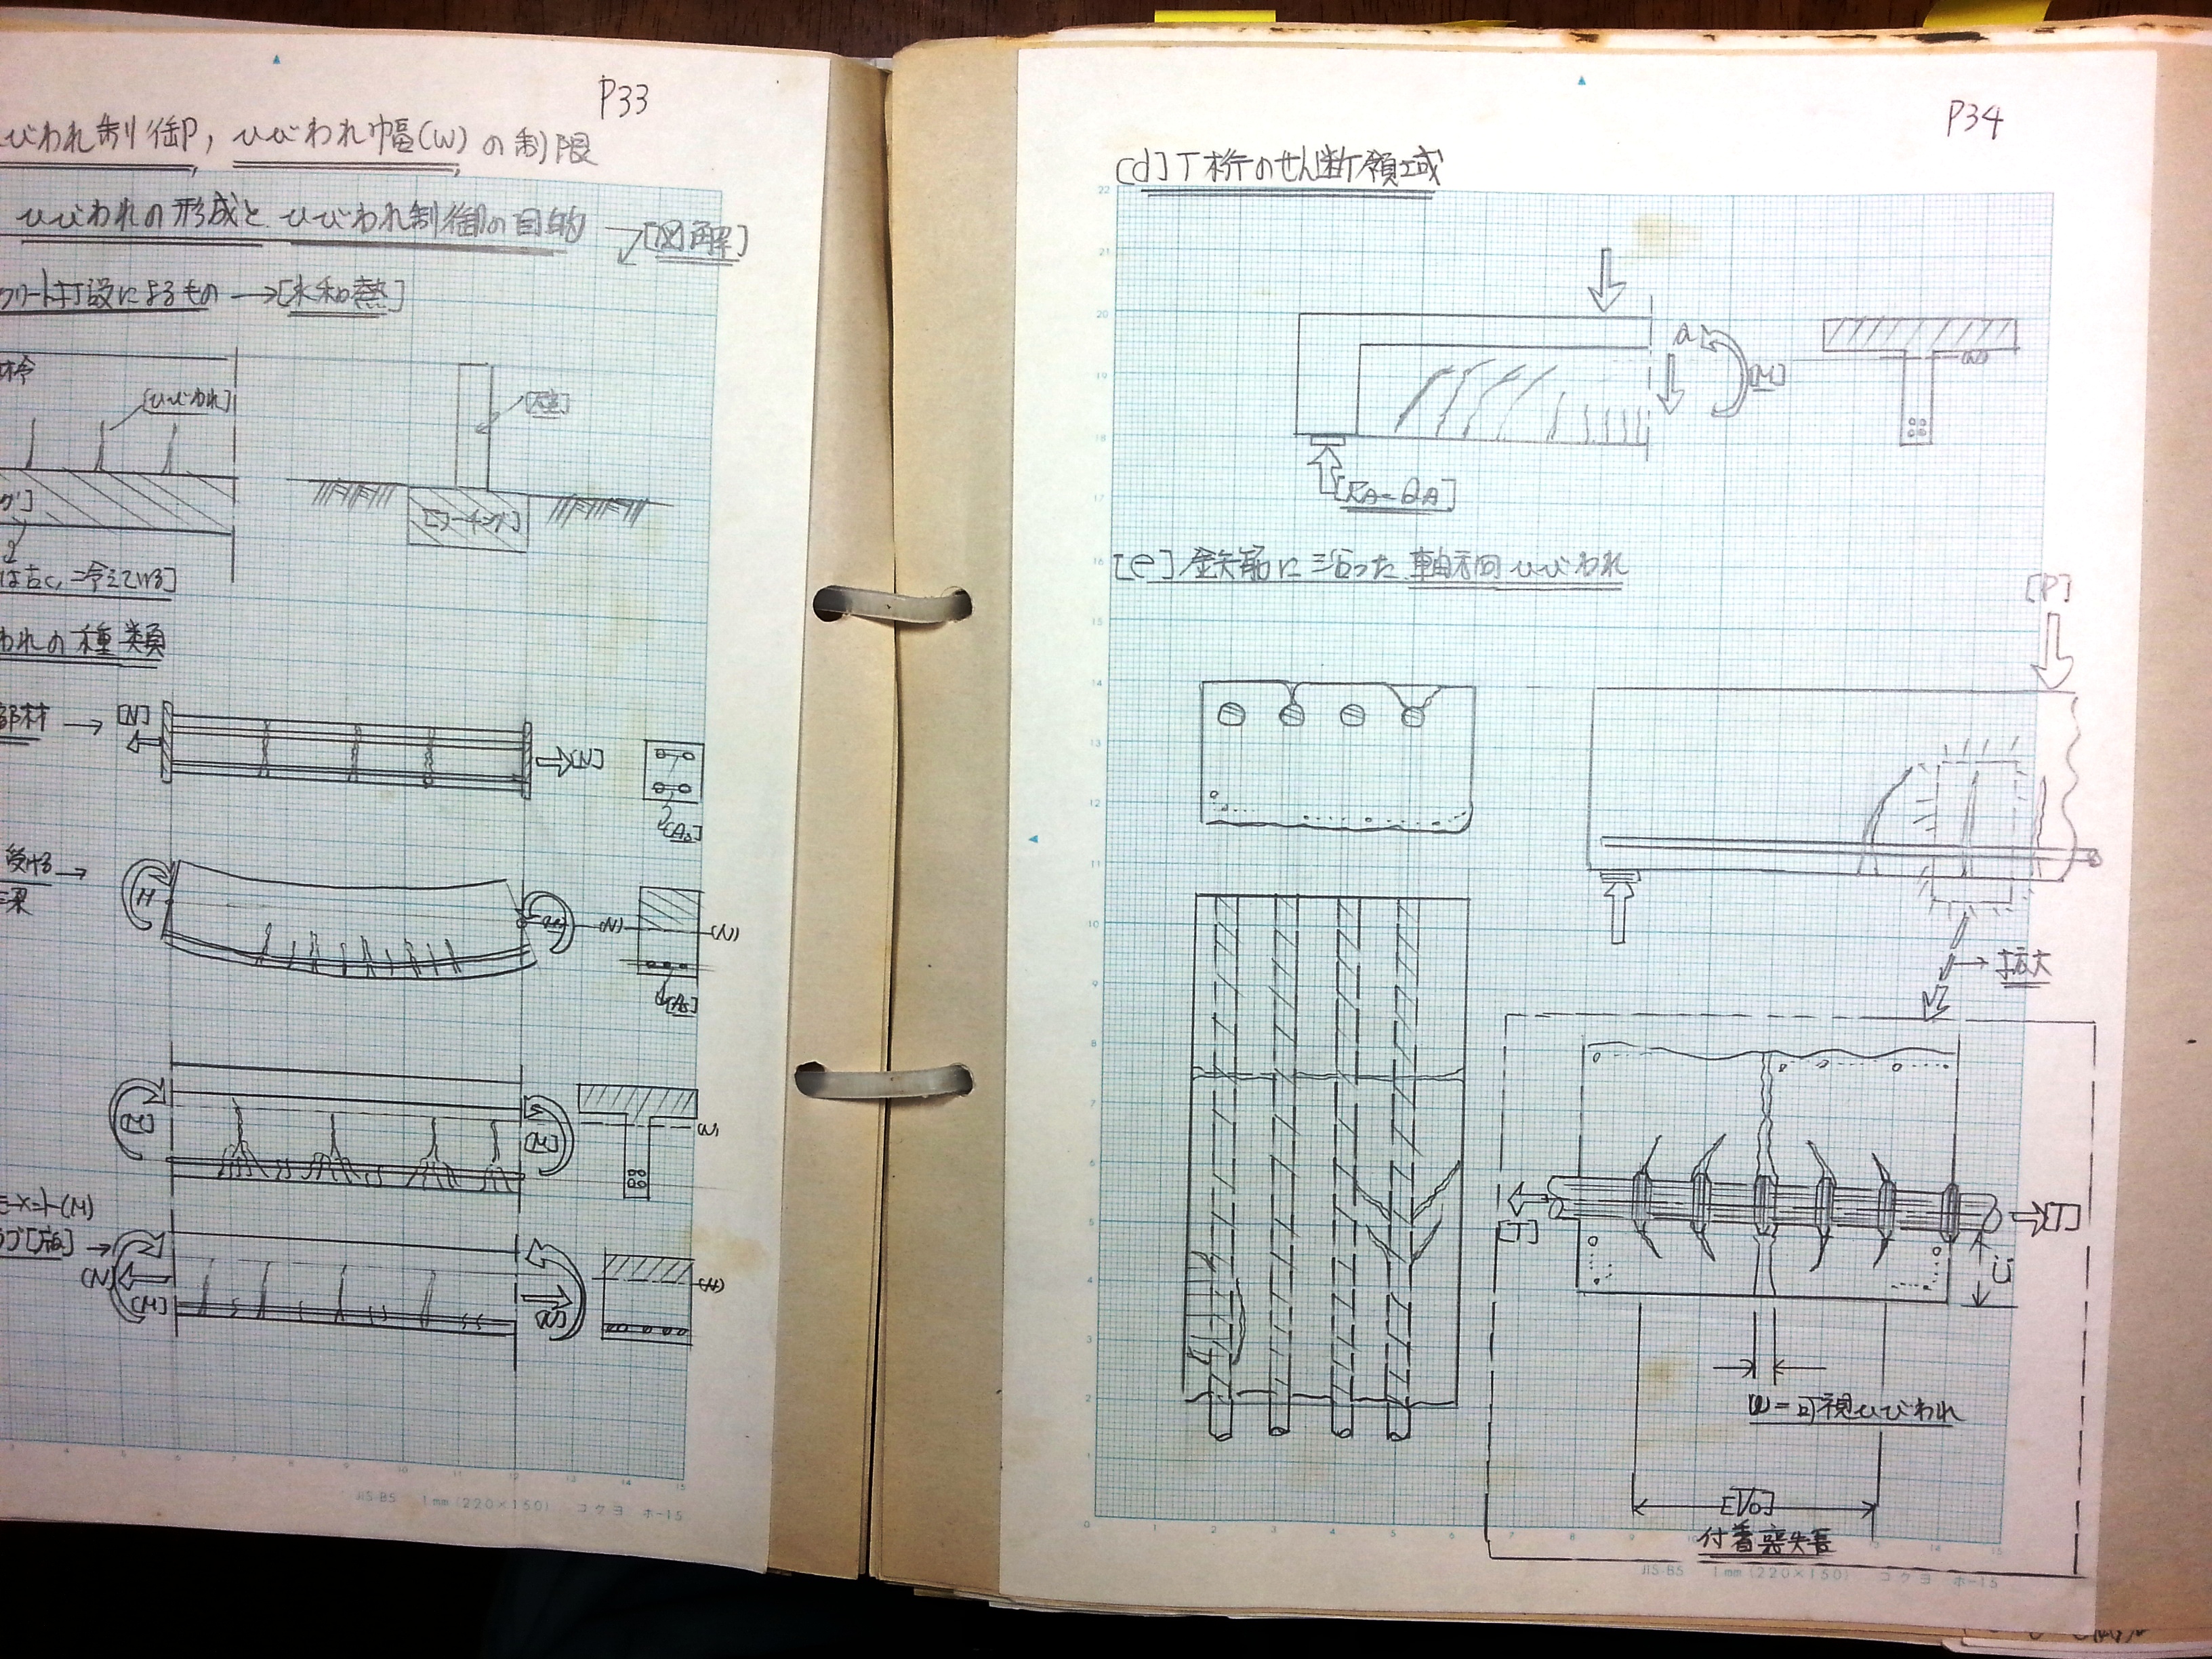 P33
ひびわれ制御, ひびわれ巾幅(W)の制限
ひびわれの形成と ひびわれ制御の目的 → [図解]
クリート打設によるもの → [水和熱]
[ひびわれ]
[壁]
[フーチング]
は古く, 冷えている]
われの種類
部材 →
[N]
[N]
[As]
受ける →
梁
M
(N)
(N)
[As]
[M]
[M]
(N)
モーメント(M)
ラブ[版] →
(N)
[M]
[N]
(N)
JIS-B5 1mm(220×150) コクヨ ホ-15
P34
[d] T桁のせん断領域
a
[M]
(N)
[RA=QA]
[e] 鉄筋に沿った軸方向ひびわれ
[P]
→ 拡大
[T]
[T]
ü
W=可視ひびわれ
付着喪失長
JIS-B5 1mm(220×150) コクヨ ホ-15